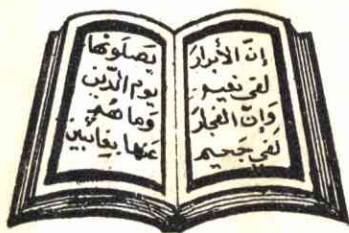 إنّ الأبرارَ
لفي نعيم
وَإنّ الفجار
لفي جَحيم
يَصلَونها
يوم الدّين
وما هُم
عَنها بغائبين